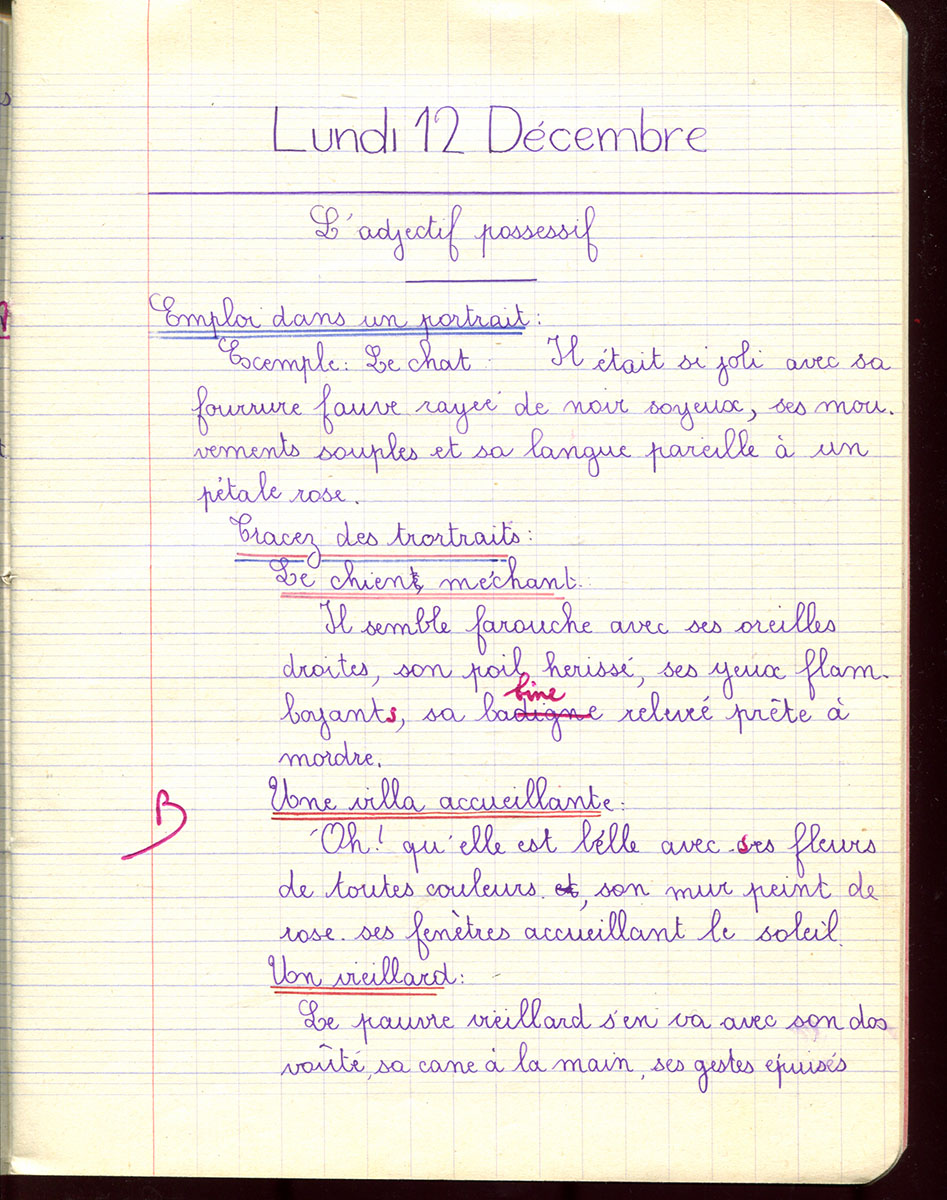 Lundi 12 Décembre
L'adjectif possessif
Emploi dans un portrait :
Exemple : Le chat Il était si joli avec sa
fourrure fauve rayée de noir soyeux, ses mou-
vements souples et sa langue pareille à un
pétale rose.
Tracez des trortraits :
Le chient, méchant.
Il semble farouche avec ses oreilles
droites, son poil herissé, ses yeux flam-
bine
boyants, sa badigne relevé prête à
mordre.
B
Une villa accueillante :
Oh! qu'elle est belle avec ses fleurs
de toutes couleurs et, son mur peint de
rose. ses fenêtres accueillant le soleil.
Un vieillard :
Le pauvre vieillard s'en va avec son dos
voûté, sa cane à la main, ses gestes épuisés